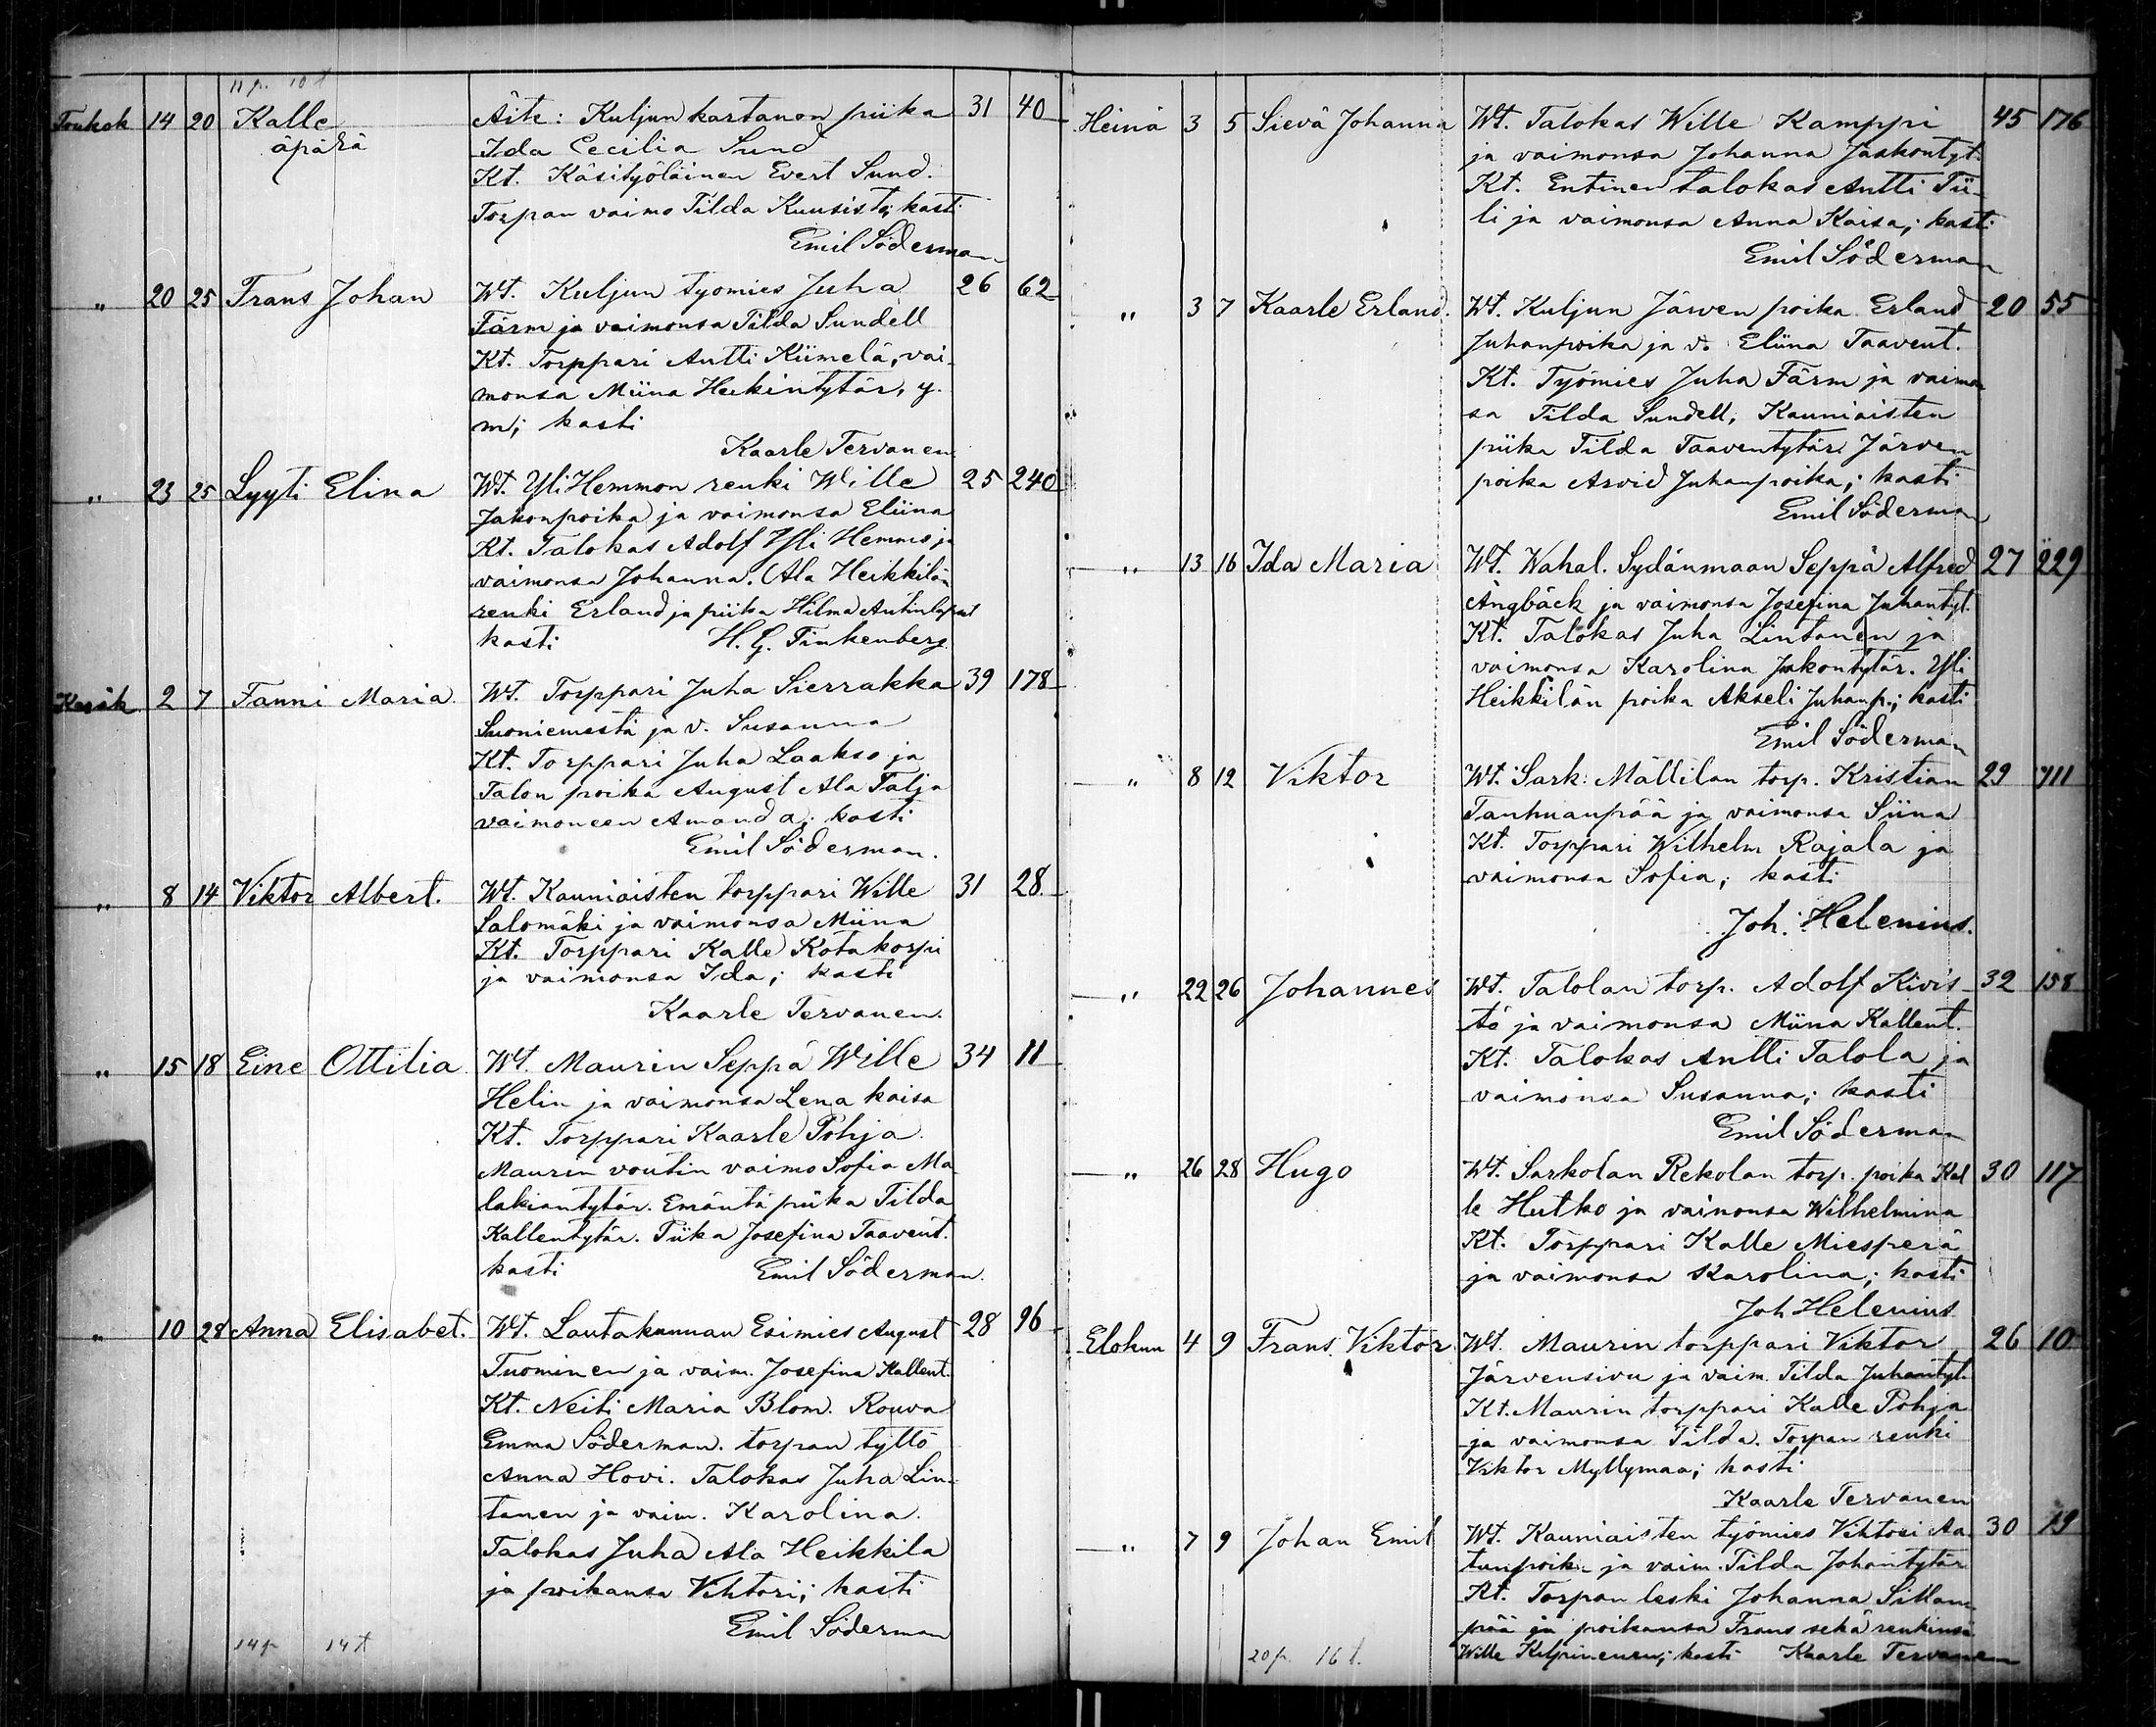 11 p. 10 t
Toukok 14 20 Kalle Äite: Kuljun kartanon piika 31 40
äpärä Ida Cecilia Sund
Kt. Käsityöläinen Evert Sund.
Torpan vaimo Tilda Kuusisto; kasti
Emil Söderman
" 20 25 Frans Johan Wt. Kuljun työmies Juha 26 62
Färm ja vaimonsa Tilda Sundell
Kt. Torppari Antti Kiimelä, vai-
monsa Miina Heikintytär, y.
m; kasti
Kaarle Tervanen
" 23 25 Lyyti Elina Wt. Yli Hemmon renki Wille 25 240
Jakonpoika ja vaimonsa Eliina
Kt. Talokas Adolf Yli Hemmo ja
vaimonsa Johanna. Ala Heikkilän
renki Erland ja piika Hilma Antinlapset
kasti H. G. Finkenberg
Kesäk 2 7 Fanni Maria Wt. Torppari Juha Sierrakka 39 178
Suoniemestä ja v. Susanna
Kt. Torppari Juha Laakso ja
Talon poika August Ala Talja
vaimoneen Amanda; kasti
Emil Söderman.
" 8 14 Viktor Albert. Wt. Kauniaisten torppari Wille 31 28
Salomäki ja vaimonsa Miina
Kt. Torppari Kalle Kotakorpi
ja vaimonsa Ida; kasti
Kaarle Tervanen.
" 15 18 Eine Ottilia Wt. Maurin Seppä Wille 34 11
Helin ja vaimonsa Lena kaisa
Kt. Torppari Kaarle Pohja
Maurin voutin vaimo Sofia Ma
lakiantytär. Emäntä piika Tilda
Kallentytär. Piika Josefina Taavent.
kasti Emil Söderman.
" 10 28 Anna Elisabet. Wt. Lautakunnan Esimies August 28 96
Tuominen ja vaim. Josefina Kallent.
Kt. Neiti Maria Blom. Rouva
Emma Söderman. torpan tyttö
Anna Hovi. Talokas Juha Lin-
tanen ja vaim. Karolina.
Talokas Juha Ala Heikkila
ja poikansa Vihtori; kasti
Emil Söderman
14 p 14 t
Heinä 3 5 Sievä Johanna Wt. Talokas Wille Kamppi 45 176
ja vaimonsa Johanna Jaakontyt.
Kt. Entinen talokas Antti Tii-
li ja vaimonsa Anna Kaisa; kasti
Emil Söderman
" 3 7 Kaarle Erland. Wt. Kuljun Järven poika Erland 20 55
Juhanpoika ja v. Eliina Taavent.
Kt. Työmies Juha Färm ja vaimon
sa Tilda Sundell, Kauniaisten
piika Tilda Taaventytär Järven
poika Arvid Juhanpoika; kasti
Emil Söderman
" 13 16 Ida Maria Wt. Wahal. Sydänmaan Seppä Alfred 27 229
Ängbäck ja vaimonsa Josefina Juhantyt.
Kt. Talokas Juha Lintanen ja
vaimonsa Karolina Jakontytär. Yli
Heikkilän poika Akseli Juhanp.; kasti
Emil Söderman
" 8 12 Viktor Wt. Sark: Mällilan torp. Kristian 29 711
Tanhuanpää ja vaimonsa Siina
Kt. Torppari Wilhelm Rajala ja
vaimonsa Sofia; kasti
Joh: Helenius.
" 22 26 Johannes Wt. Talolan torp. Adolf Kivis- 32 158
tö ja vaimonsa Miina Kallent.
Kt. Talokas Antti Talola ja
vaimonsa Susanna; kasti
Emil Söderman
" 26 28 Hugo Wt. Sarkolan Rekolan torp. poika Kal 30 117
le Hutko ja vaimonsa Wilhelmina
Kt. Torppari Kalle Miesperä
ja vaimonsa Karolina; kasti
Joh Helenius
Elokuu 4 9 Frans Viktor Wt. Maurin torppari Viktor 26 10
Järvensivu ja vaim. Tilda Juhantyt.
Kt. Maurin torppari Kalle Pohja
ja vaimonsa Tilda. Torpan renki
Viktor Myllymaa; kasti
Kaarle Tervanen
" 7 9 Johan Emil Wt. Kauniaisten työmies Vihtori Aa 30 19
tunpoik. ja vaim. Tilda Johantytär
Kt. Torpan leski Johanna Sillan
pää ja poikansa Frans sekä renkinsä
Wille kasti Kaarle Tervanen
20 p. 16 t.